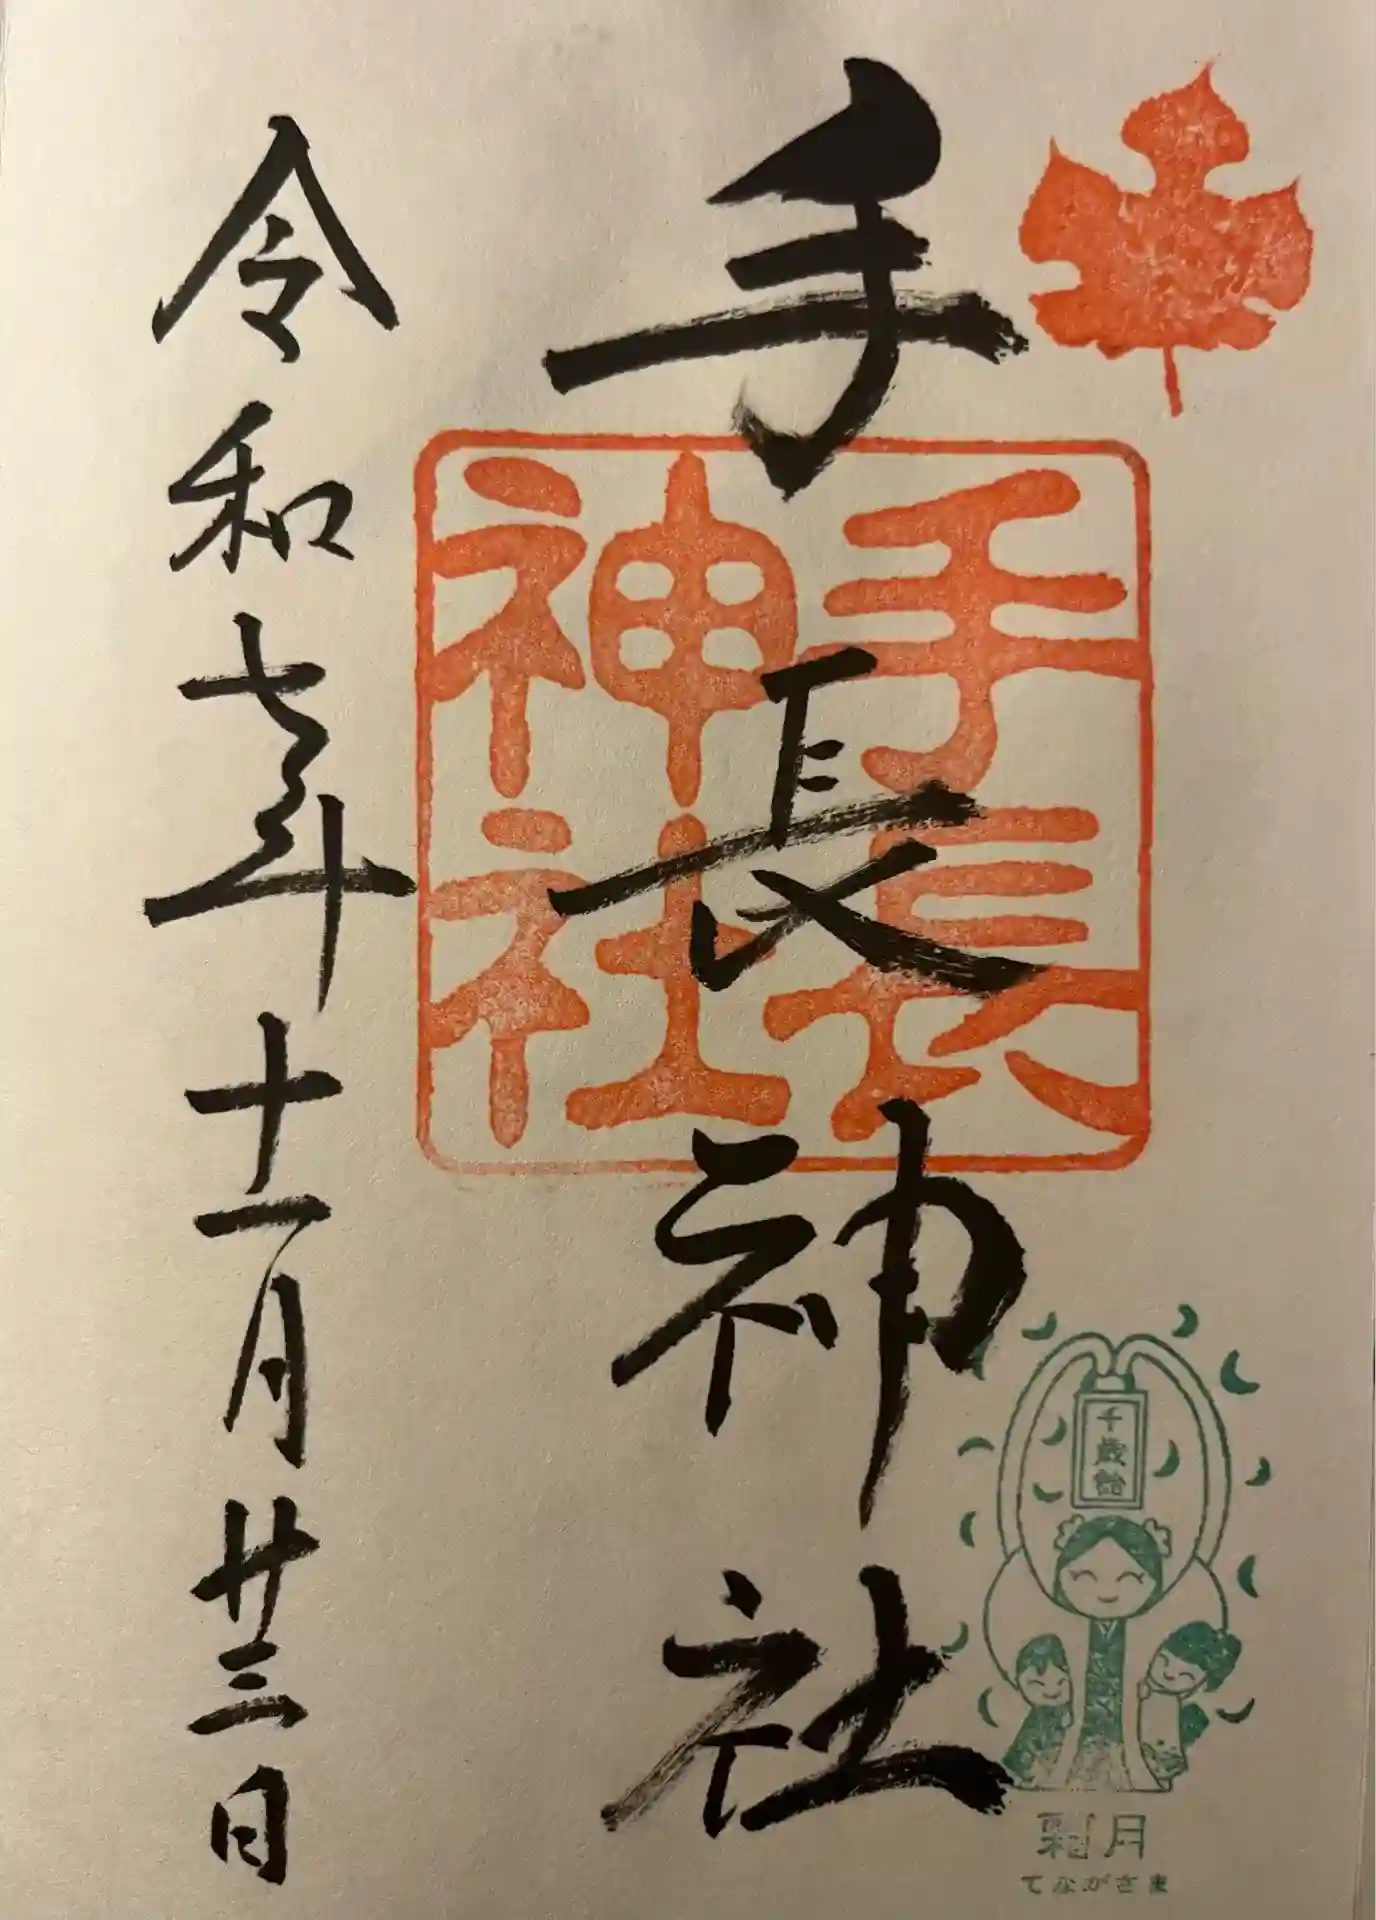 手長神社
手長
神社
千歳飴
霜月
てながさま
令和七年十一月廿三日